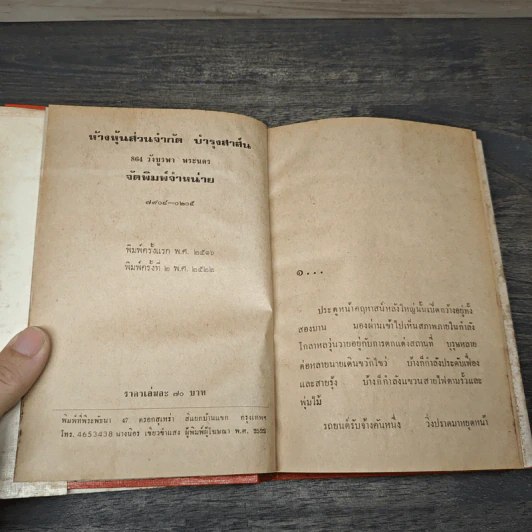 ห้างหุ้นส่วนจำกัด บำรุงสาส์น
864 วังบูรพา พระนคร
จัดพิมพ์จำหน่าย
๗๙๐๔—๐๒๐๕
พิมพ์ครั้งแรก พ.ศ. ๒๕๑๖
พิมพ์ครั้งที่ ๒ พ.ศ. ๒๕๒๒
ราคาเล่มละ ๗๐ บาท
พิมพ์ที่พีระพัธนา 47 ตรอกสุเหร่า สี่แยกบ้านแขก กรุงเทพฯ
โทร. 4653438 นางนิตร เขียวชำแสง ผู้พิมพ์ผู้โฆษณา พ.ศ. 2522
๑...
ประตูหน้าคฤหาสน์หลังใหญ่นั้นเปิดกว้างอยู่ทั้ง
สองบาน มองผ่านเข้าไปเห็นสภาพภายในกำลัง
โกลาหลวุ่นวายอยู่กับการตกแต่งสถานที่ บุรุษหลาย
ต่อหลายนายเดินขวักไขว่ บ้างก็กำลังประดับเฟื่อง
และสายรุ้ง บ้างก็กำลังแขวนสายไฟตามรั้วและ
พุ่มไม้
รถยนต์รับจ้างคันหนึ่ง วิ่งปราดมาหยุดหน้า